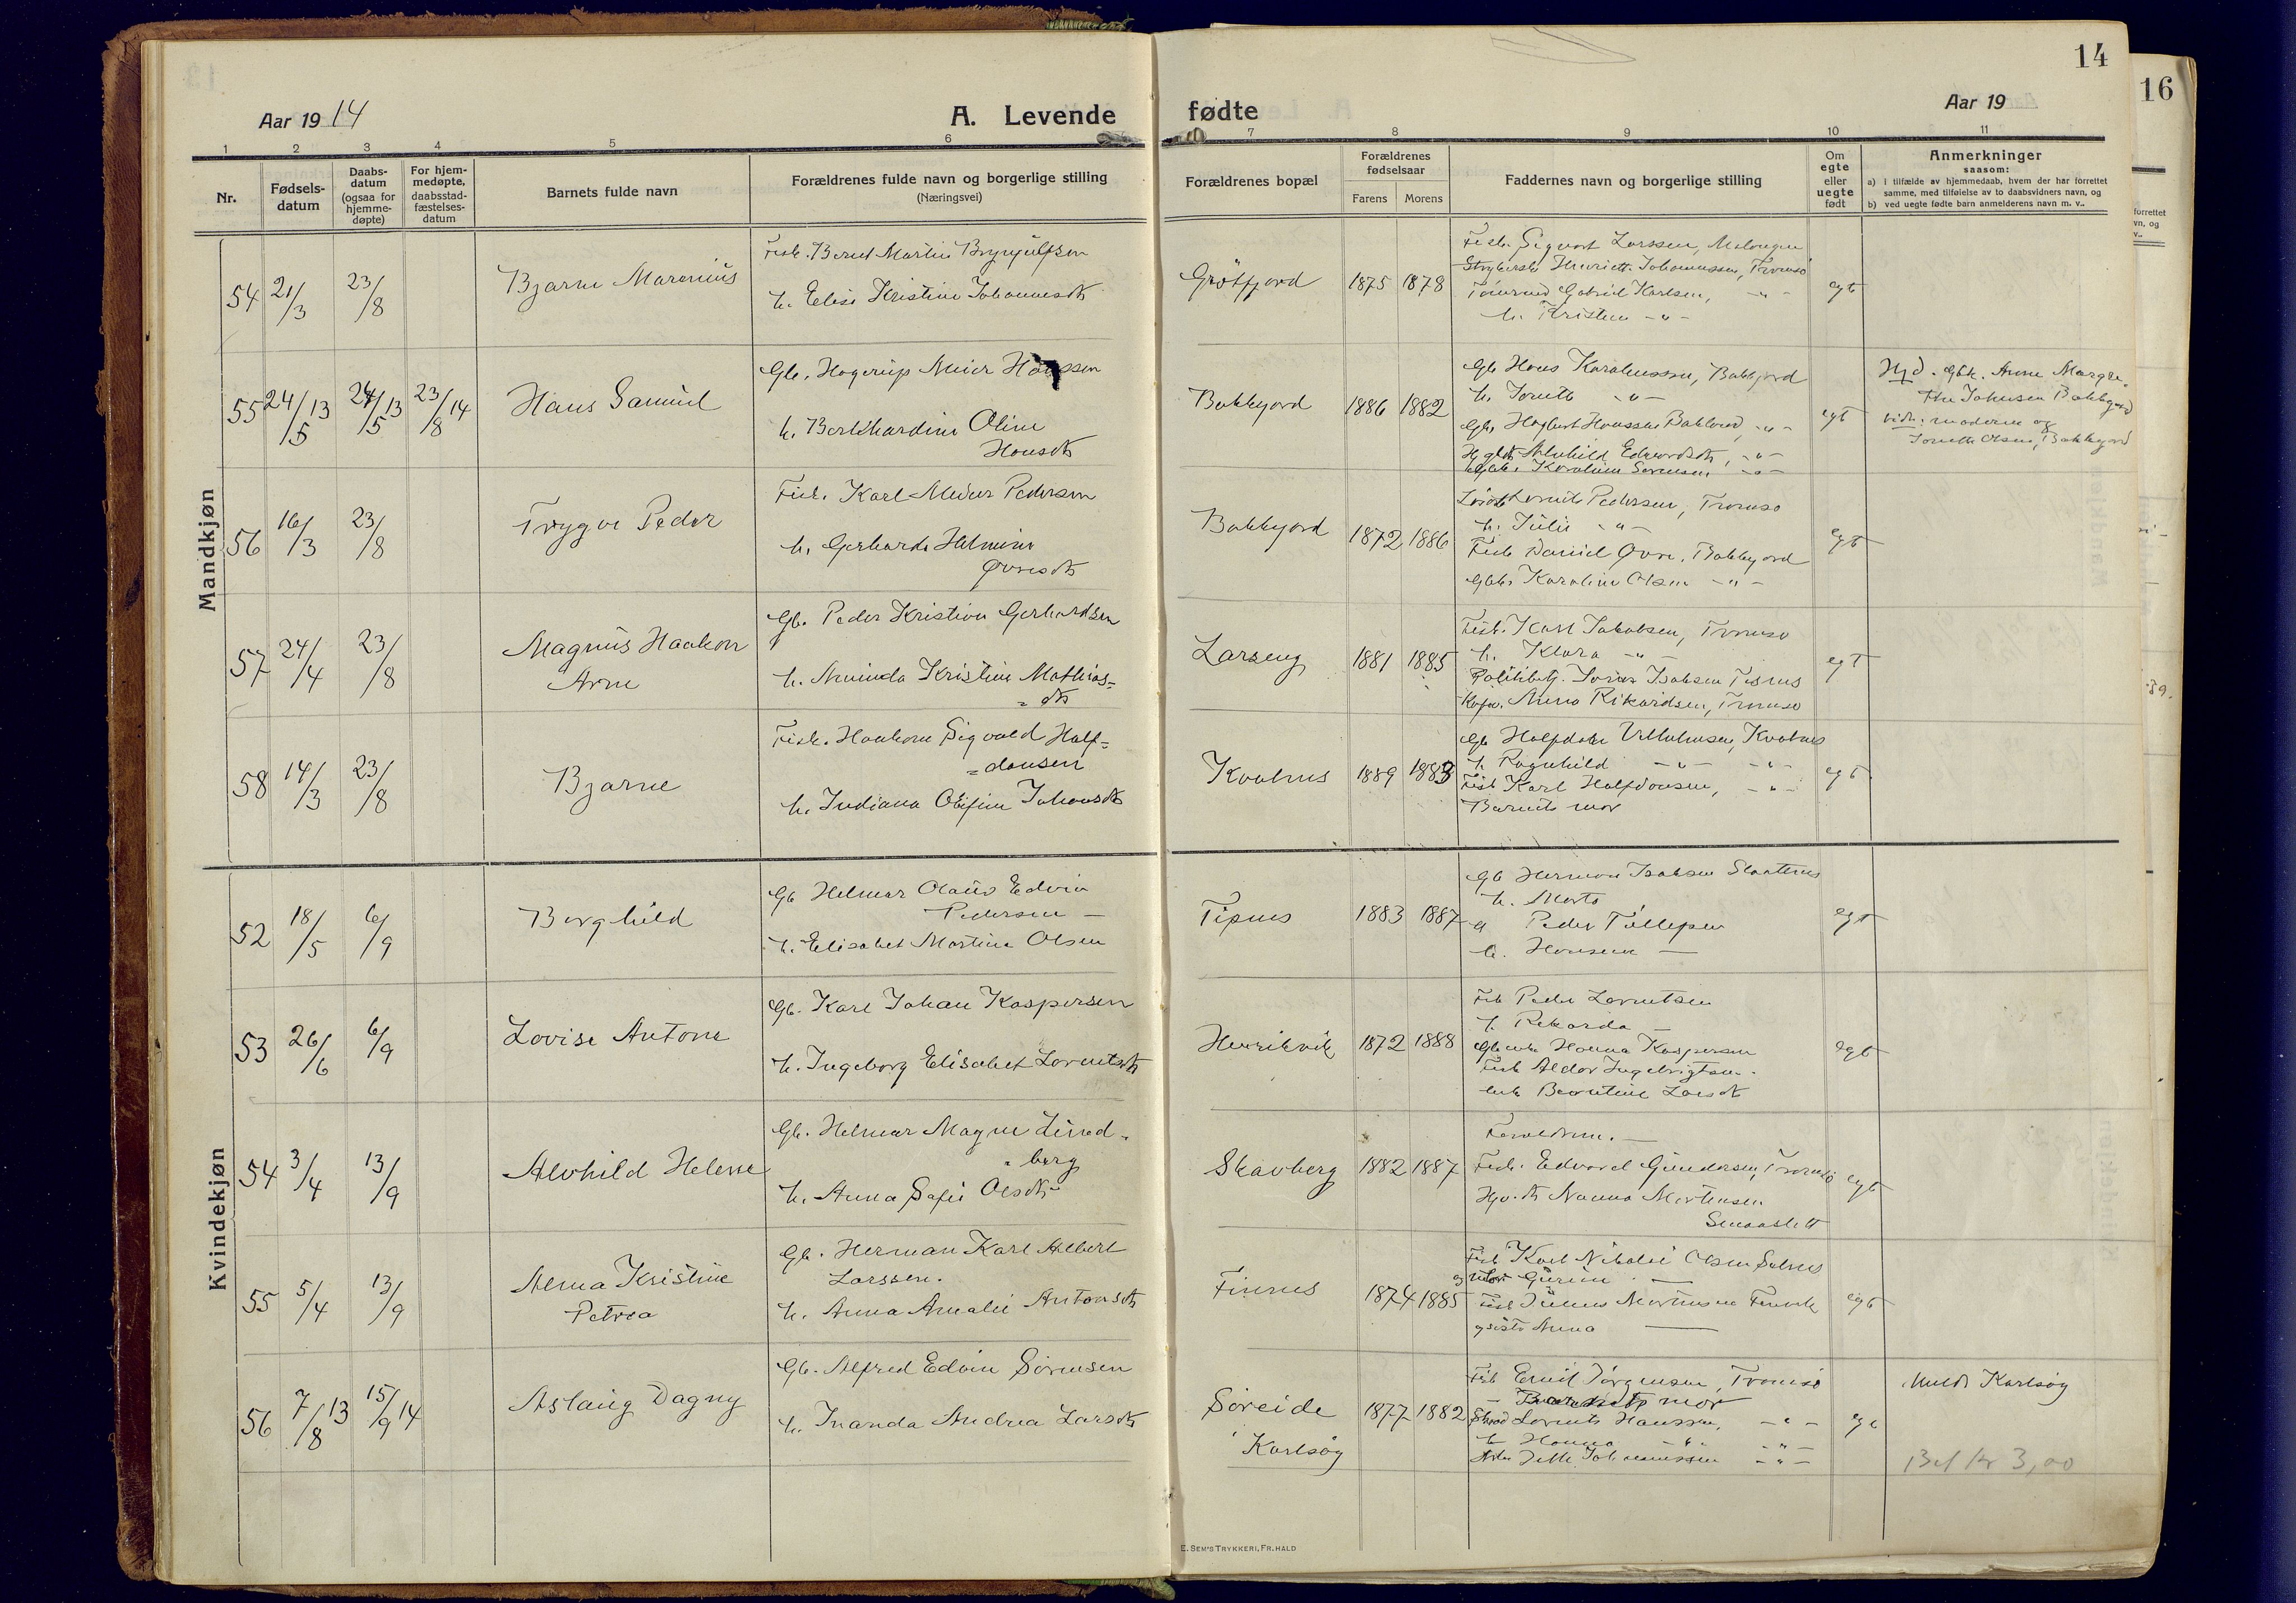 14
16
Aar 1914
A. Levende fødte
Aar 19
1 2 3 4 5 6 7 8 9 10 11
Nr.
Fødsels-
datum
Daabs-
datum
(ogsaa for
hjemme-
døpte)
For hjem-
medøpte,
daabsstad-
fæstelses-
datum
Barnets fulde navn
Forældrenes fulde navn og borgerlige stilling
(Næringsvei)
Forældrenes bopæl
Forældrenes
fødselsaar
Farens Morens
Faddernes navn og borgerlige stilling
Om
egte
eller
uegte
født
Anmerkninger
saasom:
a) i tilfælde av hjemmedaab, hvem der har forrettet
samme, med tilføielse av to daabsvidners navn, og
b) ved uegte fødte barn anmelderens navn m. v..
Mandkjøn
54 21/3 23/8 Bjarne Maronius
Fisk. Bernt Martin Brynjulfsen
h. Elise Kristine Johannesdt
Grötfjord 1875 1878
Fisk. Sigvart Larssen, Malangen
Henriette Johannessen, Tromsö
Gabriel Karlsen, -"-
h. Kristine -"-
egt
55 24/5 13 24/5 13 23/8 14 Hans Samuel
Gb. Hagerup Meier Hanssen
h. Berkhardine Oline
Hansdt
Bakkejord 1886 1882
Gb Hans Karoliussen, Bakkejord
h. Jorette -"-
Alvhild Edvardsdt, -"-
Karoline Sørensen -"-
egt
Hjd. Gbk. Anne Margre-
the Johnsen Bakkejord
vidn: moderen og
Jorette Olsen, Bakkejord
56 16/3 23/8 Trygve Peder
Fisk. Karl Meier Pedersen
h. Gerharda Helmine
Øvresdt
Bakkejord 1872 1886
Lorents Pedersen, Tromsö
h. Julie -"-
Fisk Daniel Øvre, Bakkejord
Gbk. Karoline Olsen -"-
egt
57 24/4 23/8 Magnus Haakon
Arne
Gb. Peder Kristian Gerhardsen
h. Aminda Kristine Mathias=
=dt
Larseng 1881 1885
Fisk. Karl Jakobsen, Tromsö
h. Klara -"-
Anna Rikardsen, Tromsö
egt
58 14/3 23/8 Bjarne
Fisk. Haakon Sigvald Half=
=dansen
h. Indiana Olufine Johansdt
Kvalnes 1889 1883
Gb Halfdan Vilhelmsen, Kvalnes
h. Ragnhild -"- -"-
Fisk Karl Halfdansen, -"-
Barnets mor
egt
Kvindekjøn
52 18/5 6/9 Borghild
Gb Helmar Olaus Edvin
Pedersen -
h. Elisabet Martine Olsen
Tisnes 1883 1887
Gb Herman Isaksen Slaatnes
h. Marta
Peder Tollefsen
h. Hansine -
egt
53 26/6 6/9 Lovise Antone
Gb. Karl Johan Kaspersen
h. Ingeborg Elisabet Lorentsdt
Henrikvik 1872 1888
Fisk Peder Lorentsen
h. Rikarda -
Hanna Kaspersen
Fisk Aldor Ingebrigtsen
Berntine Larsdt
egt
54 3/4 13/9 Alvhild Helene
Gb. Helmar Magne Lind-
-berg
h. Anna Sofie Olsdt
Skavberg 1882 1887
Forældrene. -
Fisk. Edvard Gundersen, Tromsö
Nanna Mortensen
Smaaslett
egt
55 5/4 13/9 Alma Kristine
Petrea
Gb. Herman Karl Albert
Larssen.
h. Anna Amalie Antonsdt
Finnes 1874 1885
Fisk Karl Nikolai Olsen
Fisk Julius Martinsen
Anna
egt
56 7/8 13 15/9 14 Aslaug Dagny
Gb. Alfred Edvin Sörensen
h. Inanda Andrea Larsdt
Söreide
Karlsöy
1877 1882
Fisk Emil Jörgensen, Tromsö
- Barnets mor
Lorents Hanssen, -"-
h Hanna -"- -"-
Johannessen -"-
egt
Meldt Karlsöy
Bet kr 3,00
E. SEM'S TRYKKERI, FR.HALD